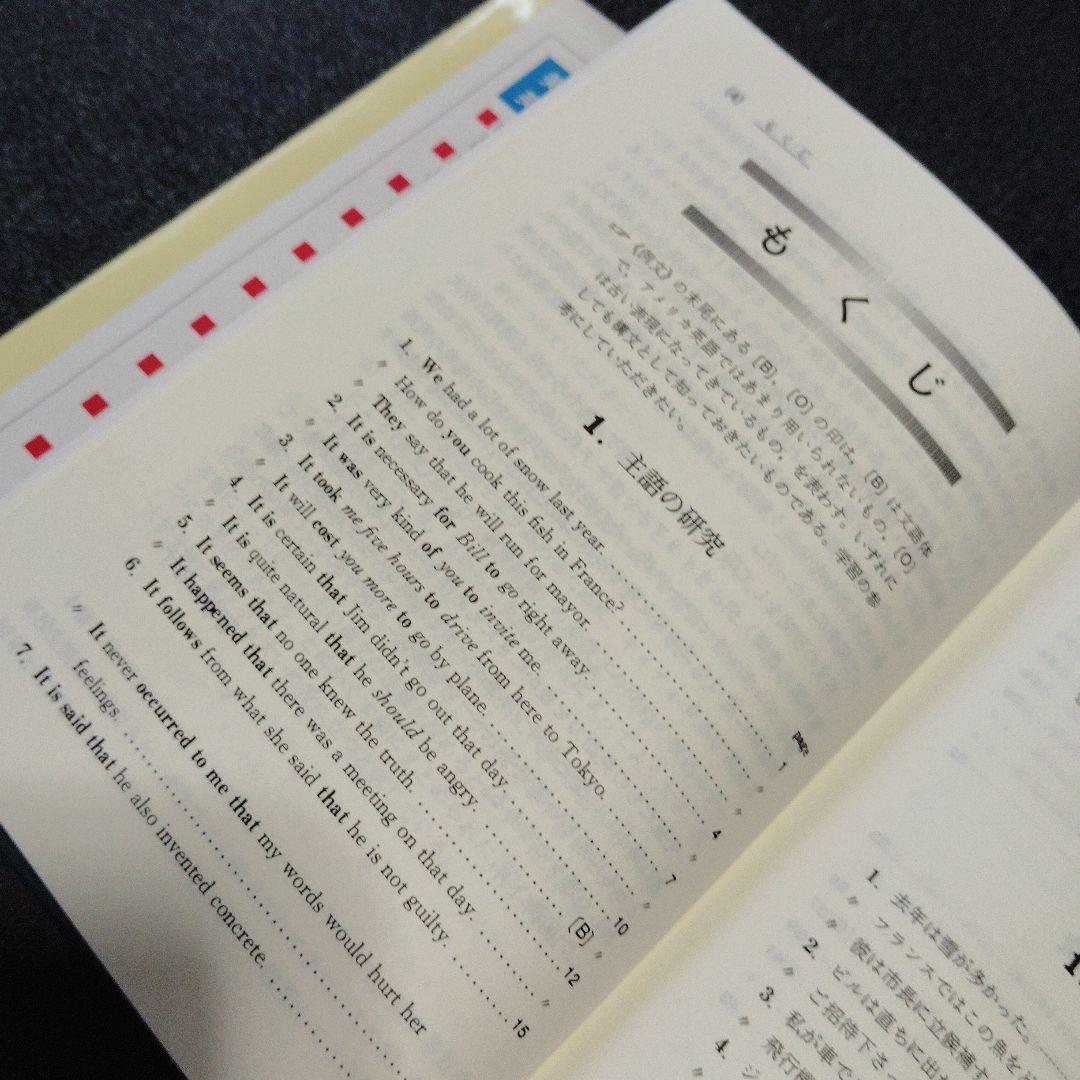 もくじ
もくじ
☞ 《例文》の末尾にある〔B〕,〔O〕の印は,〔B〕は文語体
で,アメリカ英語ではあまり用いられないもの,〔O〕
は古い表現になってきているもの,を表わす。いずれに
しても構文として知っておきたいものである。学習の参
考にしていただきたい。
1. 主語の研究
page
1. We had a lot of snow last year. 1
〃 How do you cook this fish in France? 〃
〃 They say that he will run for mayor. 4
2. It is necessary for Bill to go right away. 〃
〃 It was very kind of you to invite me. 7
3. It took me five hours to drive from here to Tokyo. 〃
〃 It will cost you more to go by plane. 10
4. It is certain that Jim didn't go out that day. 〔B〕 〃
〃 It is quite natural that he should be angry. 12
5. It seems that no one knew the truth. 〃
〃 It happened that there was a meeting on that day. 15
6. It follows from what she said that he is not guilty.
〃 It never occurred to me that my words would hurt her
feelings.
7. It is said that he also invented concrete.
1
1. 去年は雪が多かった。
〃 フランスではこの魚を
〃 彼は市長に立候補す
2. ビルは直ちに出
〃 ご招待下さっ
3. 私が車で
〃 飛行機
4. ジ